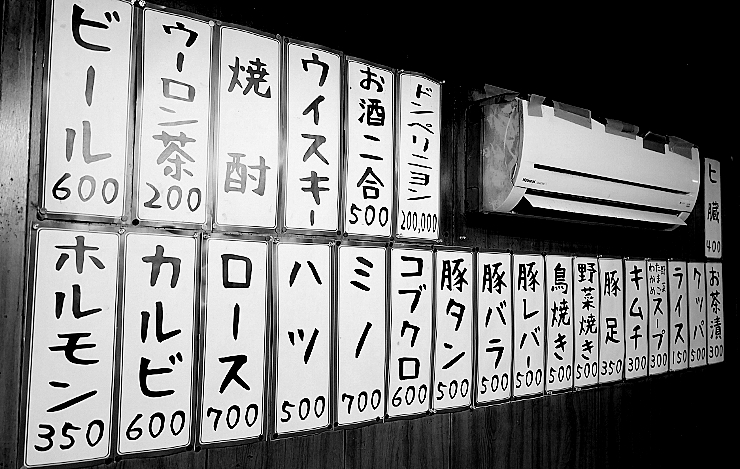 ビール 600
ウーロン茶 200
焼酎
ウイスキー
お酒二合 500
ドンペリニヨン 200,000
ヒ臓 400
ホルモン 350
カルビ 600
ロース 700
ハツ 500
ミノ 700
コブクロ 600
豚タン 500
豚バラ 500
豚レバー 500
鳥焼き 500
野菜焼き 500
豚足 350
キムチ 300
わかめ スープ 300
ライス 150
クッパ 500
お茶漬 300